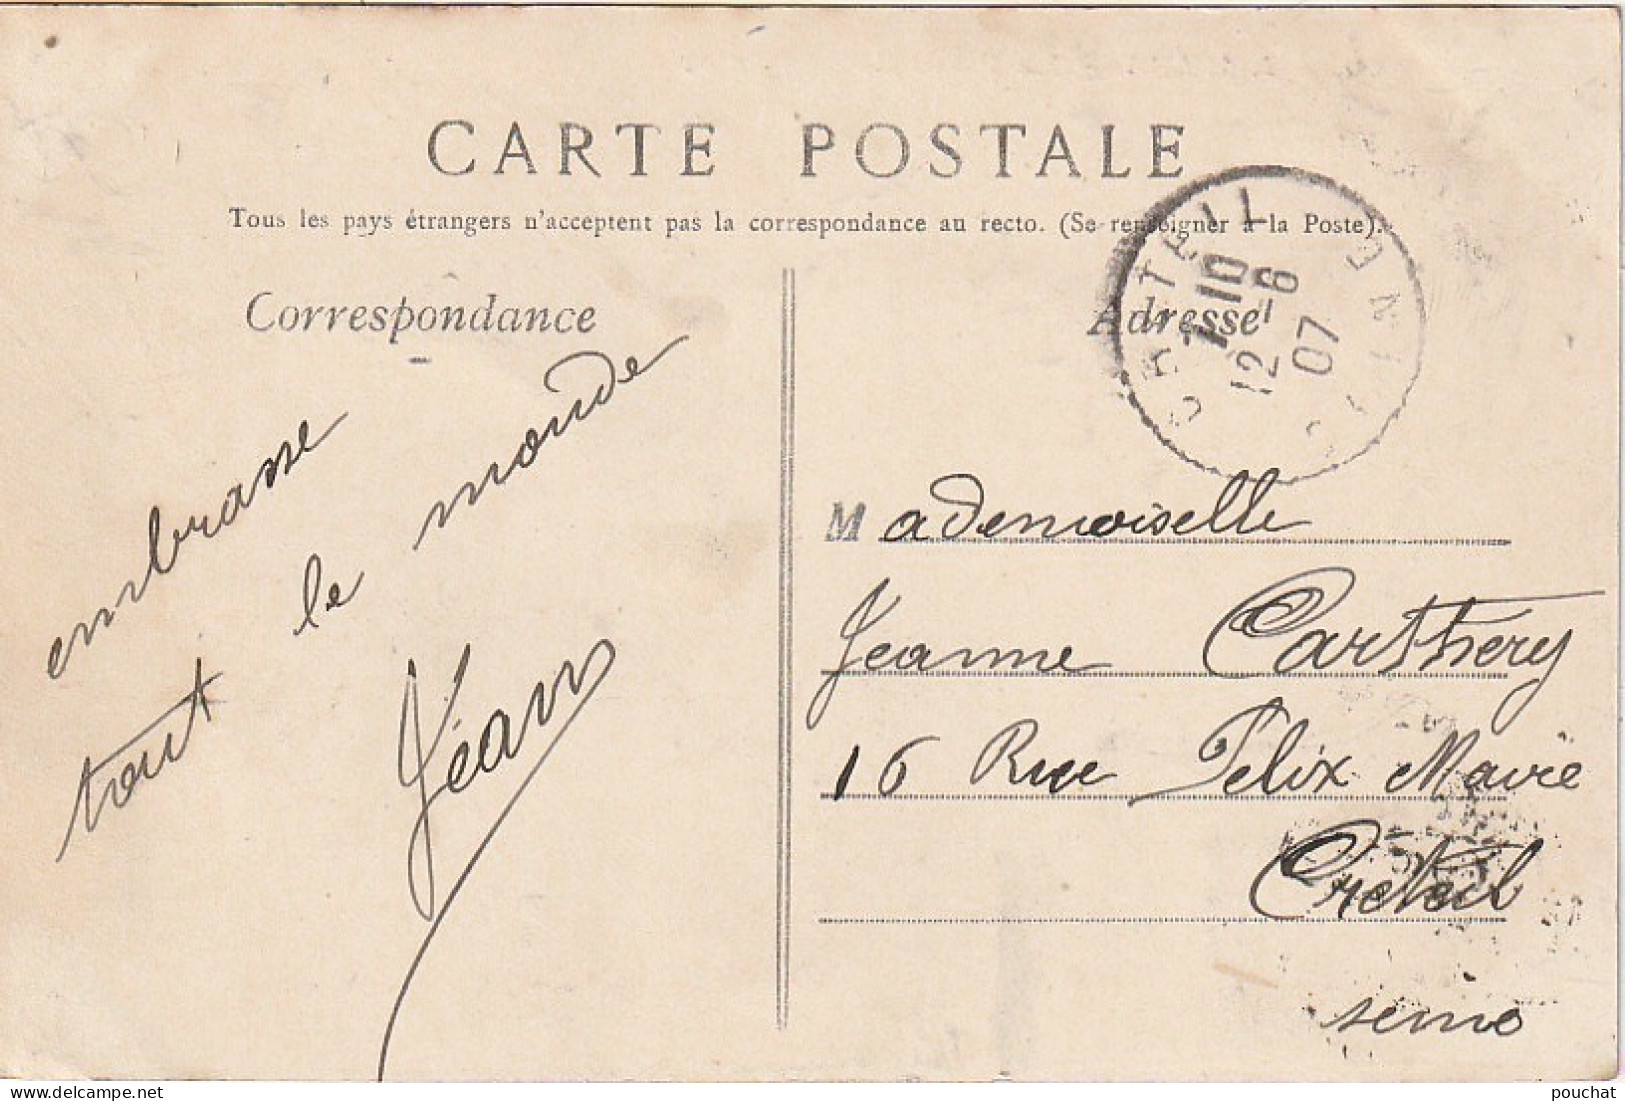 CARTE POSTALE
Tous les pays étrangers n'acceptent pas la correspondance au recto. (Se renseigner à la Poste).
Correspondance
embrasse
tout le monde
Jean
Adresse
CRETEIL SEINE
1-10
12-6
07
Mademoiselle
Jeanne Carthery
16 Rue Felix Maire
Creteil
seine
delcampe.net
pouchat